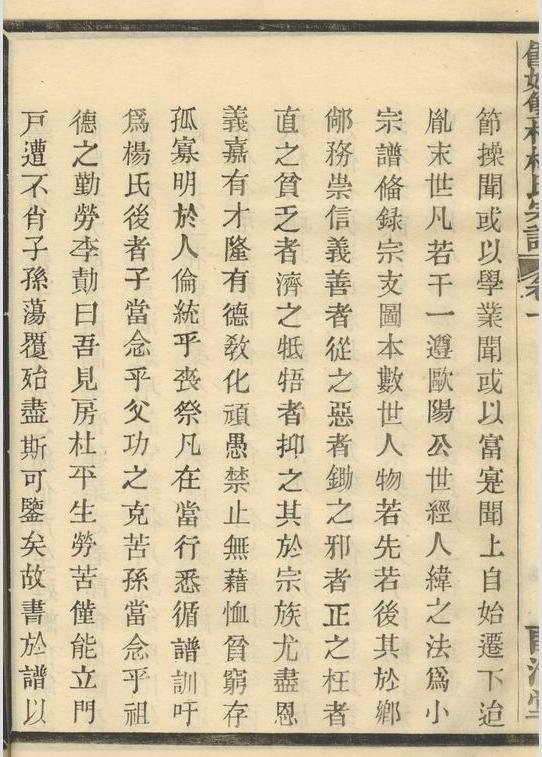 節操聞或以學業聞或以富寔聞上自始遷下迨
胤末世凡若干一遵歐陽公世經人緯之法爲小
宗譜俻録宗支圖本數世人物若先若後其於鄉
鄰務崇信義善者從之惡者鋤之邪者正之枉者
直之貧乏者濟之牴牾者抑之其於宗族尤盡恩
義嘉有才隆有德教化頑愚禁止無藉恤貧窮存
孤寡明於人倫統乎喪祭凡在當行悉循譜訓吁
爲楊氏後者子當念乎父功之克苦孫當念乎祖
德之勤勞李勣曰吾見房杜平生勞苦僅能立門
戸遭不肖子孫蕩覆殆盡斯可鑒矣故書於譜以